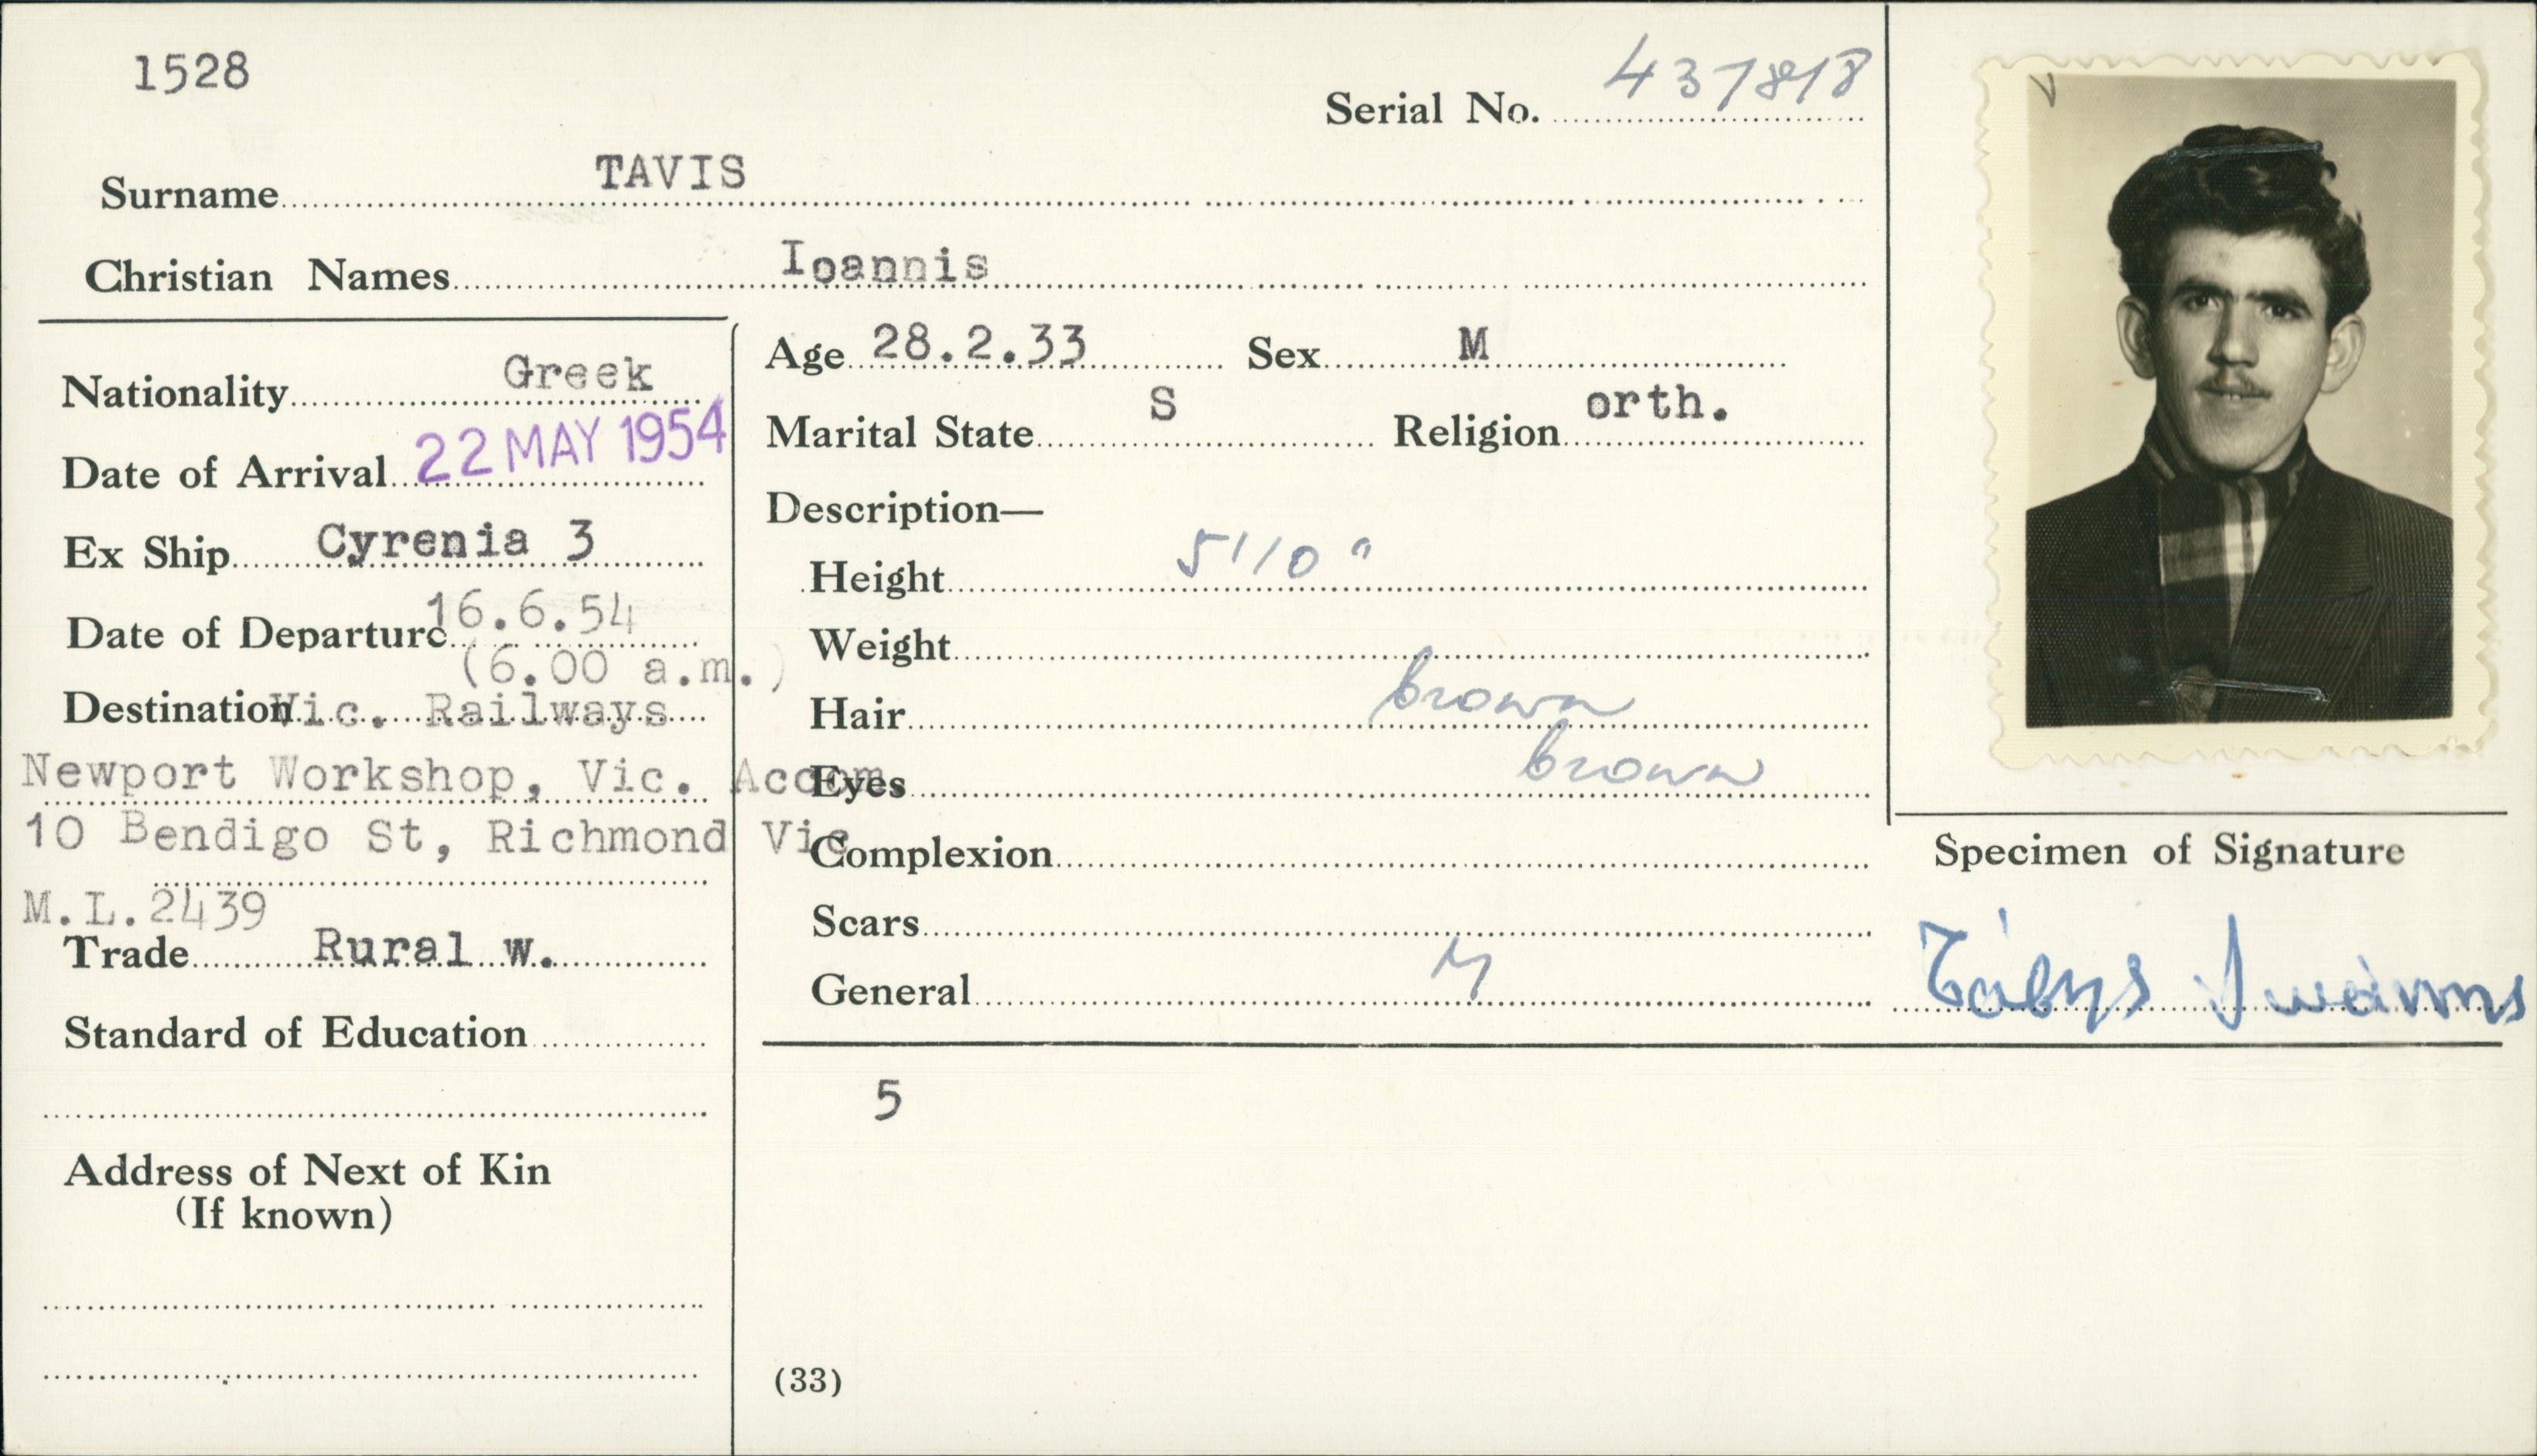 1528
Serial No. 437818
Surname TAVIS
Christian Names Ioannis
Nationality Greek
Date of Arrival 22 MAY 1954
Ex Ship Cyrenia 3
Date of Departure 16.6.54
(6.00 a.m.)
Destination Vic. Railways
Newport Workshop, Vic. Accom.
10 Bendigo St, Richmond Vic
M.L.2439
Trade Rural w.
Standard of Education
Address of Next of Kin
(If known)
Age 28.2.33 Sex M
Marital State S Religion orth.
Description—
Height 5'10"
Weight
Hair brown
Eyes brown
Complexion
Scars
General M
5
(33)
Specimen of Signature
Τάβης Ιωάννης